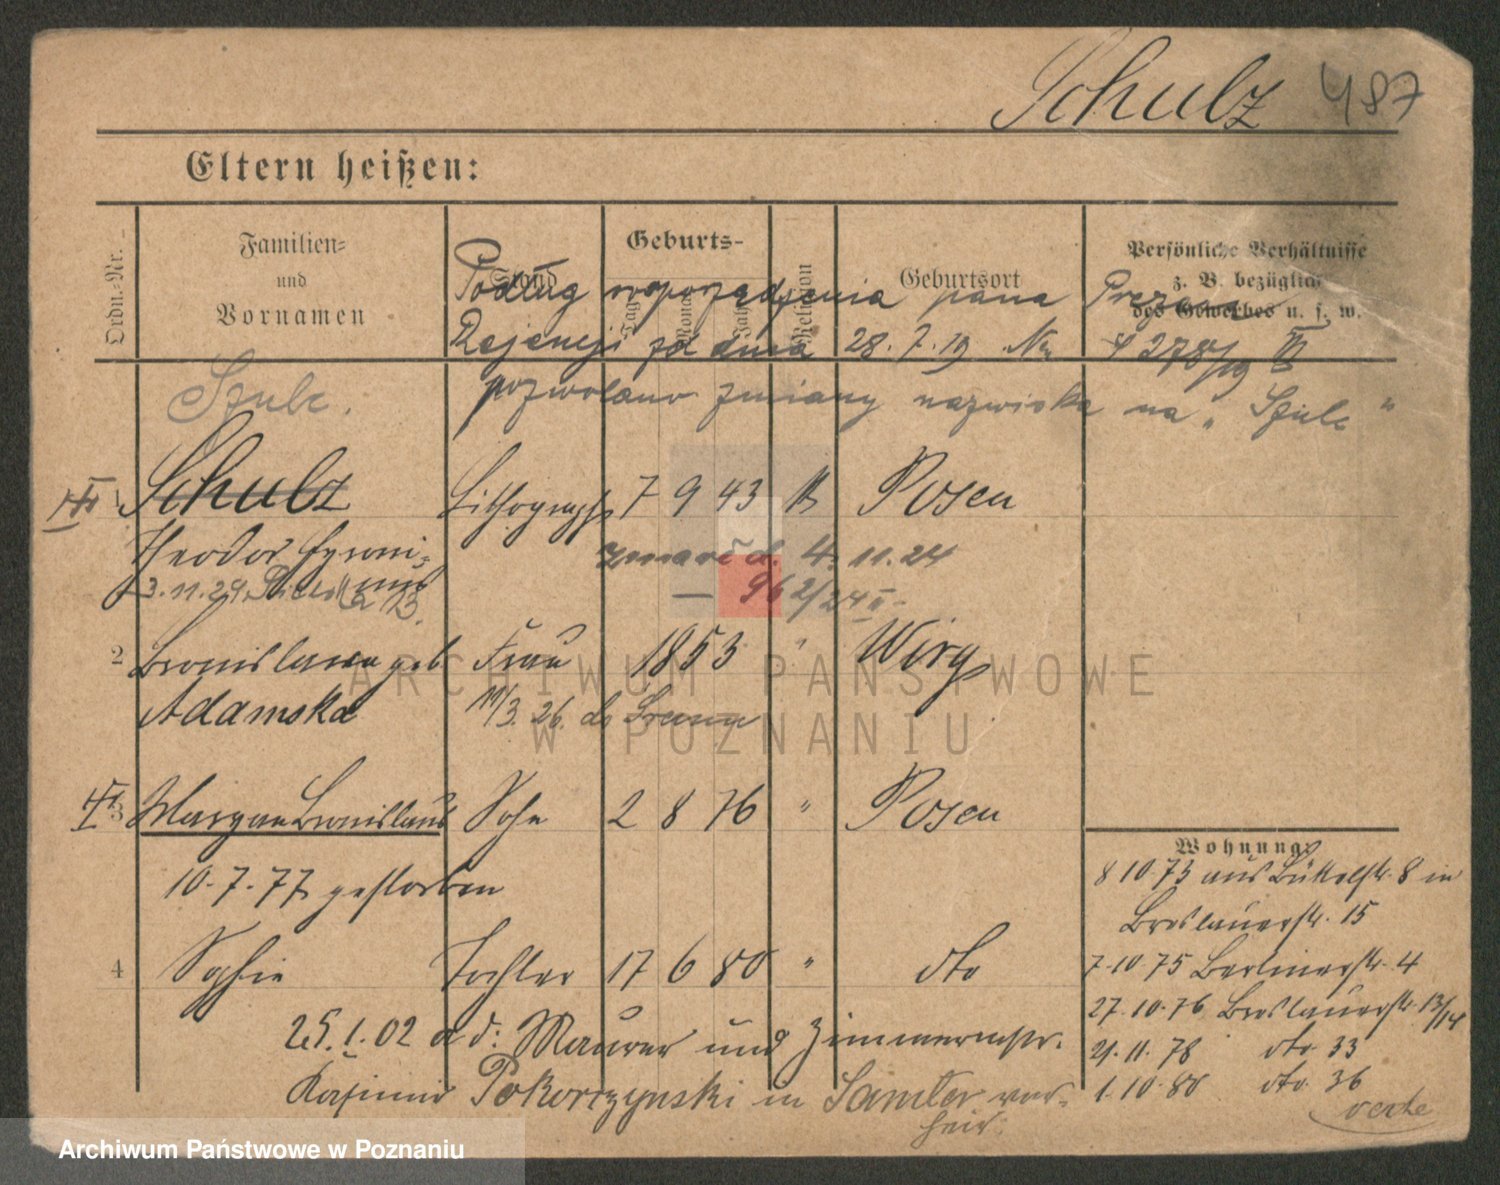 Schulz 487
Eltern heißen:
Ordn.-Nr.
Familien- und Vornamen
Stand
Geburts-
Tag
Monat
Jahr
Religion
Geburtsort
Persönliche Verhältnisse
z. B. bezüglich
des Gewerbes u. s. w.
Podług rozporządzenia pana Prezesa
Rejencji z dnia 28.7.19 Nr. 278/19
pozwolono zmiany nazwiska na „Szulc"
Szulc.
1 Schulz Lithograph 7 9 43 Posen
Theodor Hyroni-
mus
zmarł d. 4. 11. 24
— 962/24 II.
3.11.24.
2 Bronislawa geb Frau 1853 " Wiry
Adamska
11/3. 26.
3 Maryan Bronislaus Sohn 2 8 76 " Posen
10.7.77 gestorben
4 Sophie Tochter 17 6 80 " dto
25.1.02 a d. Maurer und Zimmermstr.
Kasimir Pokorzynski in Samter ver-
heir.
Wohnung:
8 10.73 aus Büttelstr. 8 in
Breslauerstr. 15
7.10.75 Berlinerstr. 4
27.10.76 Breslauerstr. 13/14
21.11.78 dto 33
1.10.80 dto. 36
verte
ARCHIWUM PAŃSTWOWE
W POZNANIU
Archiwum Państwowe w Poznaniu